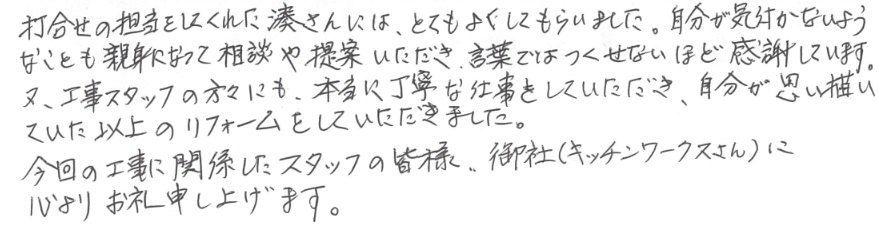 打合せの担当をしてくれた湊さんには、とてもよくしてもらいました。自分が気付かないよう
なことも親身になって相談や提案いただき、言葉ではつくせないほど感謝しています。
又、工事スタッフの方々にも、本当に丁寧な仕事をしていただき、自分が思い描い
ていた以上のリフォームをしていただきました。
今回の工事に関係したスタッフの皆様、御社(キッチンワークスさん)に
心よりお礼申し上げます。